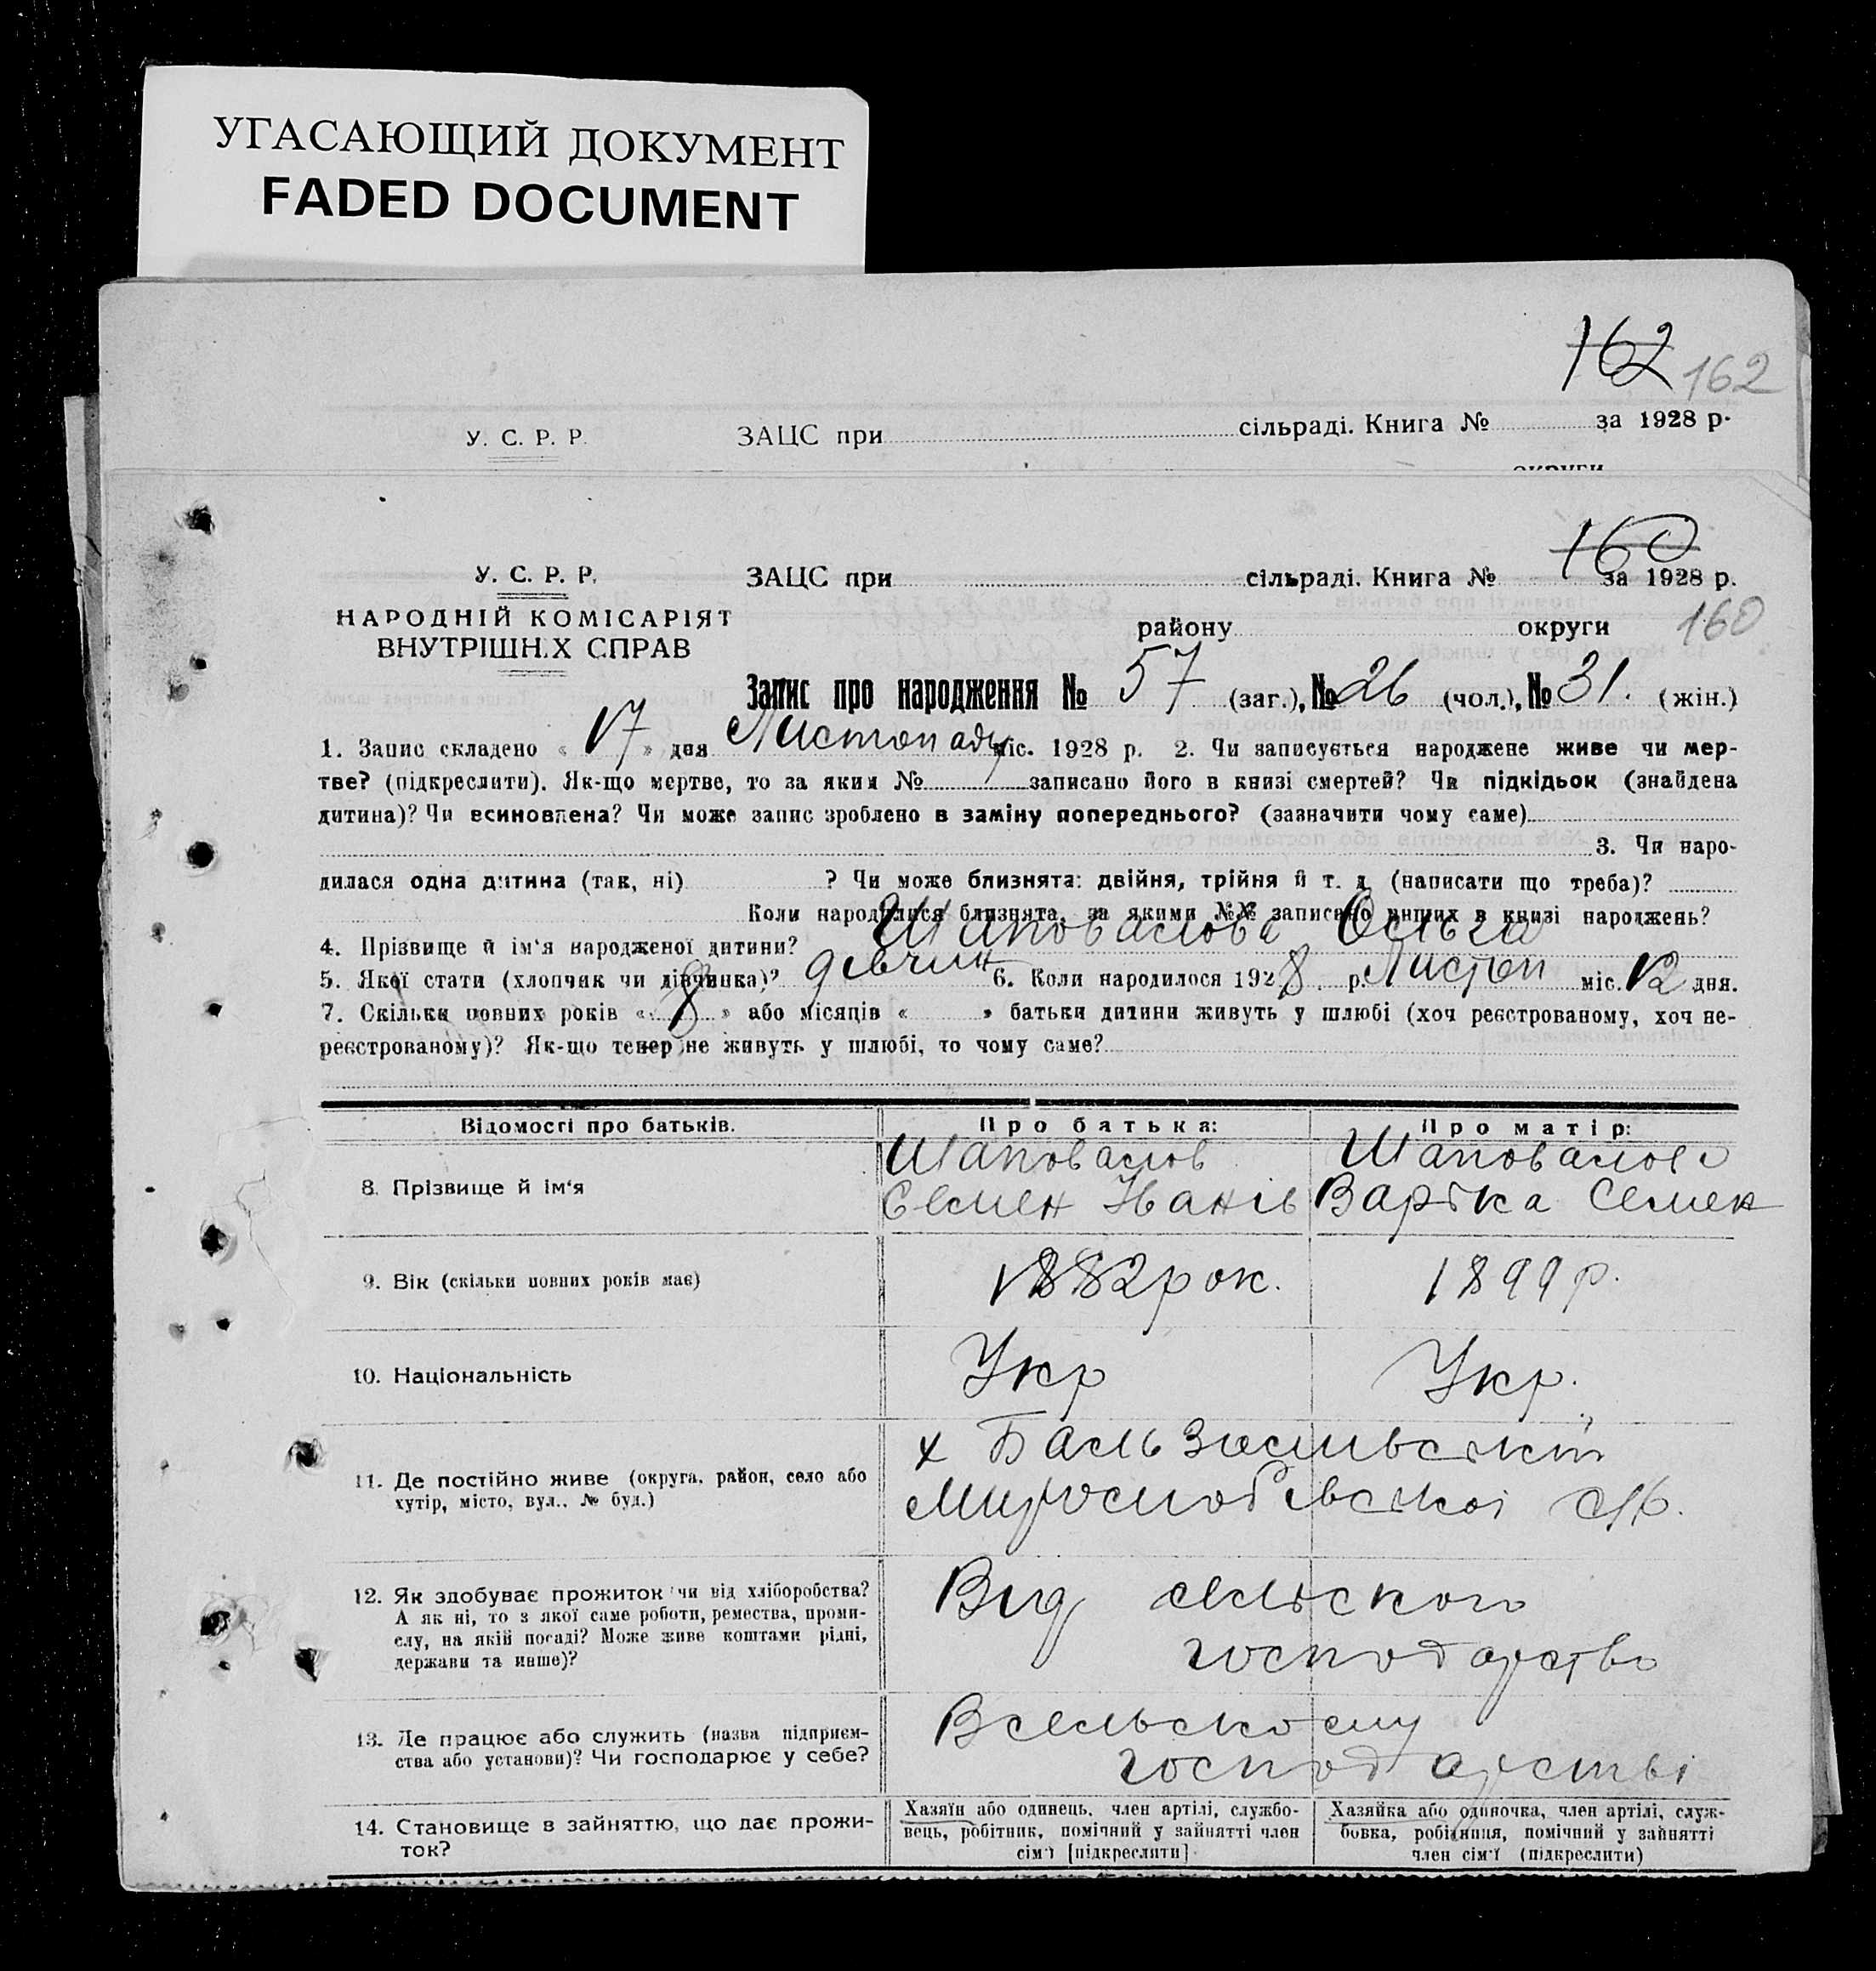 УГАСАЮЩИЙ ДОКУМЕНТ
FADED DOCUMENT
162 162
У. С. Р. Р. ЗАЦС при сільраді. Книга № за 1928 р.
округи
160
У. С. Р. Р. ЗАЦС при сільраді. Книга № за 1928 р.
НАРОДНІЙ КОМІСАРІЯТ
ВНУТРІШН.Х СПРАВ
району округи 160
Запис про народження № 57 (заг.), № 26 (чол.), № 31. (жін.)
1. Запис складено « 17 » дня Листопаду міс. 1928 р. 2. Чи записується народжене живе чи мер-
тве? (підкреслити). Як-що мертве, то за яким № записано його в книзі смертей? Чи підкідьок (знайдена
дитина)? Чи всиновлена? Чи може запис зроблено в заміну попереднього? (зазначити чому саме)
3. Чи наро-
дилася одна дитина (так, ні) ? Чи може близнята: двійня, трійня й т. д. (написати що треба)?
Коли народилися близнята, за якими №№ записано инших в книзі народжень?
4. Прізвище й ім'я народженої дитини? Шаповалова Ольга
5. Якої стати (хлопчик чи дівчинка)? дівчин 6. Коли народилося 1928 р. Листоп міс. 12 дня.
7. Скільки повних років « 8 » або місяців « » батьки дитини живуть у шлюбі (хоч реєстрованому, хоч не-
реєстрованому)? Як-що тепер не живуть у шлюбі, то чому саме?
Відомості про батьків. Про батька: Про матір:
8. Прізвище й ім'я
Шаповалов
Семен Іванів
Шаповалова
Варька Семен
9. Вік (скільки повних років має) 1882 рок. 1899 р.
10. Національність Укр Укр.
11. Де постійно живе (округа, район, село або
хутір, місто, вул., № буд.)
х
с/р.
12. Як здобуває прожиток чи від хліборобства?
А як ні, то з якої саме роботи, ремества, проми-
слу, на якій посаді? Може живе коштами рідні,
держави та инше)?
Від сельского
господарства
13. Де працює або служить (назва підприєм-
ства або установи)? Чи господарює у себе?
В сельскому
господарстві
14. Становище в зайняттю, що дає прожи-
ток?
Хазяїн або одинець, член артілі, службо-
вець, робітник, помічний у зайнятті член
сім'ї [підкреслити]
Хазяйка або одиночка, член артілі, служ-
бовка, робітниця, помічний у зайнятті
член сім'ї (підкреслити)